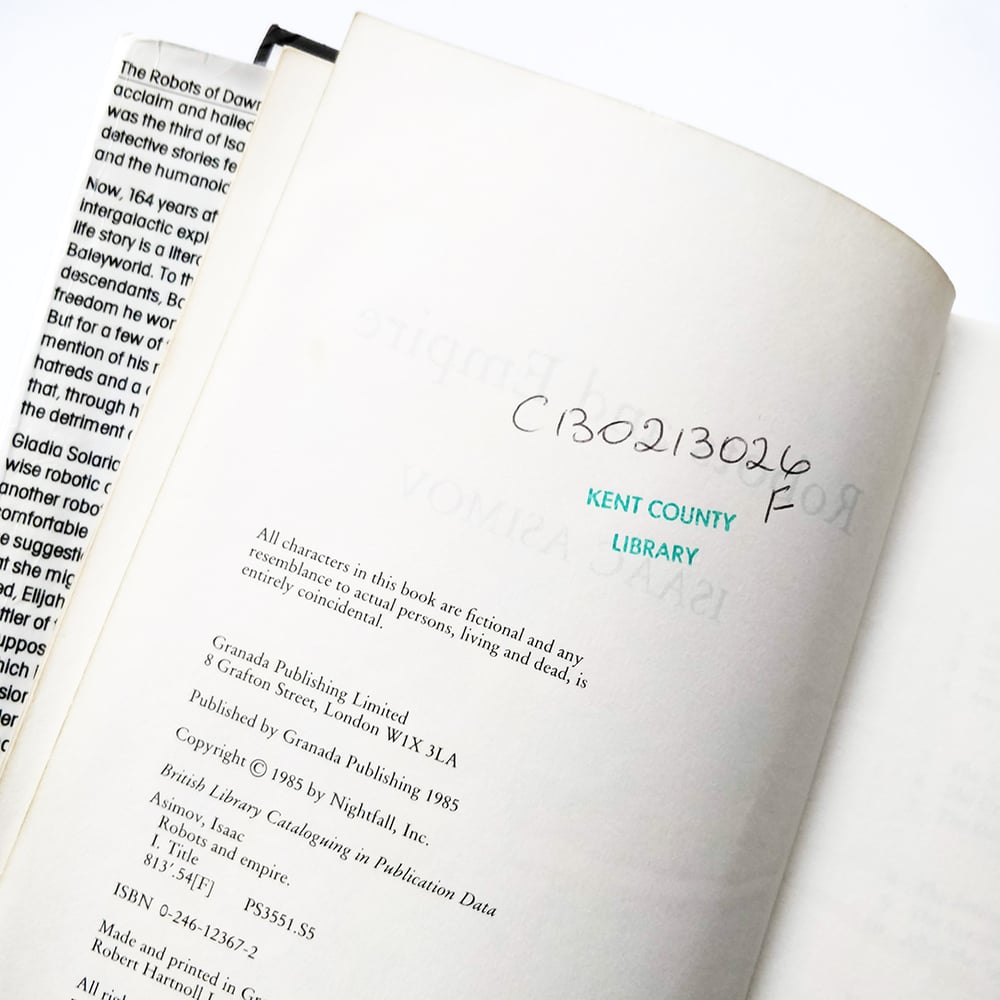 The Robots of Dawn
acclaim and hailed
was the third of Isa
detective stories fe
and the humanoid
Now, 164 years af
intergalactic expl
life story is a litera
Baleyworld. To th
descendants, Ba
freedom he won
But for a few of
mention of his r
hatreds and a
that, through h
the detriment
Gladia Solaria
wise robotic
another robo
comfortable
e suggesti
at she mig
ed, Elijah
ttler of
uppos
hich
sion
der
C130213026
F
KENT COUNTY
LIBRARY
Robots and Empire
ISAAC ASIMOV
All characters in this book are fictional and any
resemblance to actual persons, living and dead, is
entirely coincidental.
Granada Publishing Limited
8 Grafton Street, London W1X 3LA
Published by Granada Publishing 1985
Copyright © 1985 by Nightfall, Inc.
British Library Cataloguing in Publication Data
Asimov, Isaac
Robots and empire.
I. Title
813'.54[F] PS3551.S5
ISBN 0-246-12367-2
Made and printed in Gr
Robert Hartnoll L
All righ